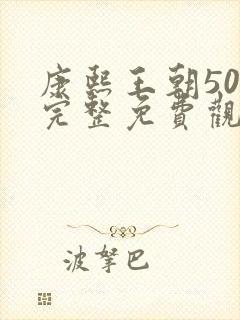 康熙王朝50
完整免費觀
波拏巴